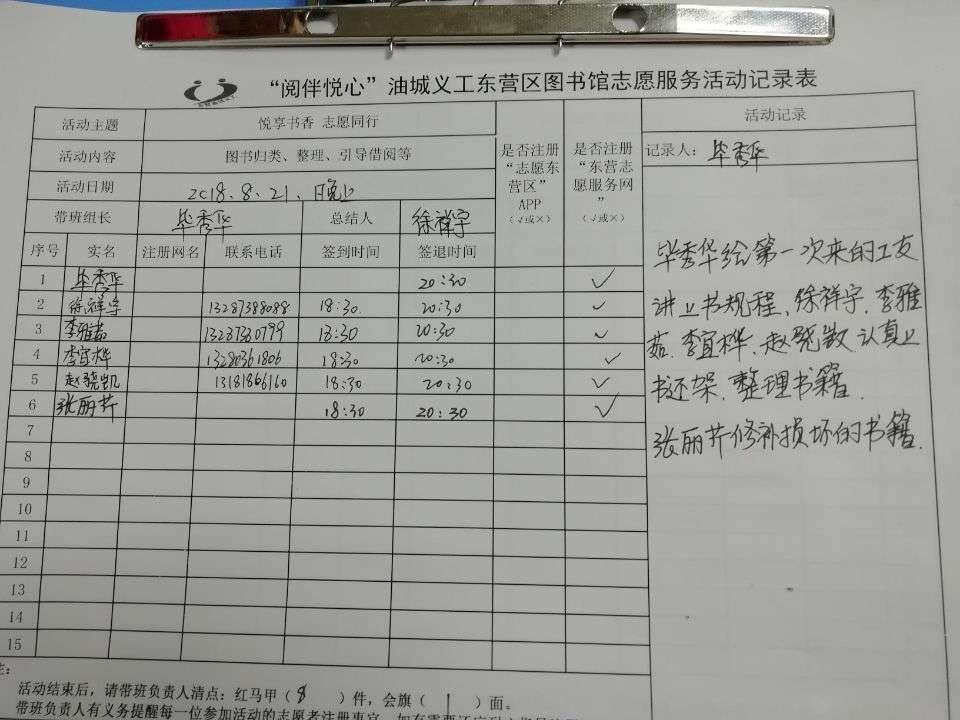 “阅伴悦心”油城义工东营区图书馆志愿服务活动记录表
活动主题 悦享书香 志愿同行
活动内容 图书归类、整理、引导借阅等
活动日期 2018.8.21、晚上
带班组长 毕秀华 总结人 徐祥宇
是否注册“志愿东营区”APP（√或×）
是否注册“东营志愿服务网”（√或×）
序号 实名 注册网名 联系电话 签到时间 签退时间
1 毕秀华 20:30 ✓
2 徐祥宇 13287388088 18:30 20:30 ✓
3 李雅茹 18:30 20:30 ✓
4 李宜桦 13280361806 18:30 20:30 ✓
5 赵骁凯 13181866160 18:30 20:30 ✓
6 张丽芹 18:30 20:30 ✓
7
8
9
10
11
12
13
14
15
活动记录
记录人：毕秀华
毕秀华给第一次来的工友
讲上书规程、徐祥宇、李雅
茹、李宜桦、赵骁凯认真上
书还架、整理书籍.
张丽芹修补损坏的书籍.
注：
活动结束后，请带班负责人清点：红马甲（8）件，会旗（1）面。
带班负责人有义务提醒每一位参加活动的志愿者注册事宜